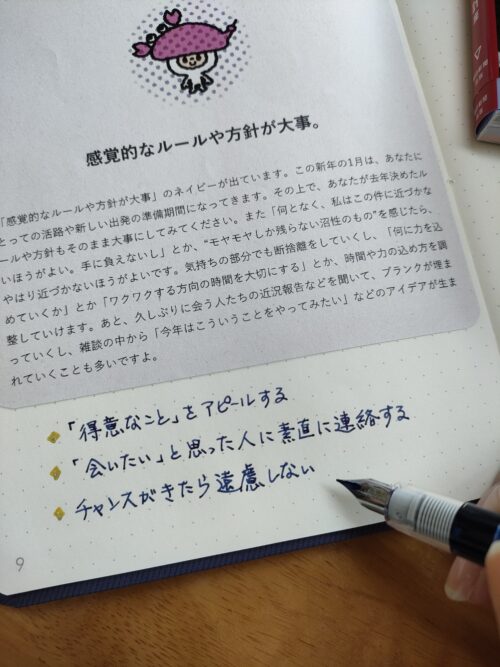 感覚的なルールや方針が大事。
「感覚的なルールや方針が大事」のネイビーが出ています。この新年の1月は、あなたに
とっての活路や新しい出発の準備期間になってきます。その上で、あなたが去年決めたル
ールや方針もそのまま大事にしてみてください。また「何となく、私はこの件に近づかな
いほうがよい。手に負えないし」とか、“モヤモヤしか残らない沼性のもの”を感じたら、
やはり近づかないほうがよいです。気持ちの部分でも断捨離をしていくし、「何に力を込
めていくか」とか「ワクワクする方向の時間を大切にする」とか、時間や力の込め方を調
整していけます。あと、久しぶりに会う人たちの近況報告などを聞いて、ブランクが埋ま
っていくし、雑談の中から「今年はこういうことをやってみたい」などのアイデアが生ま
れていくことも多いですよ。
「得意なこと」をアピールする
「会いたい」と思った人に素直に連絡する
チャンスがきたら遠慮しない
9